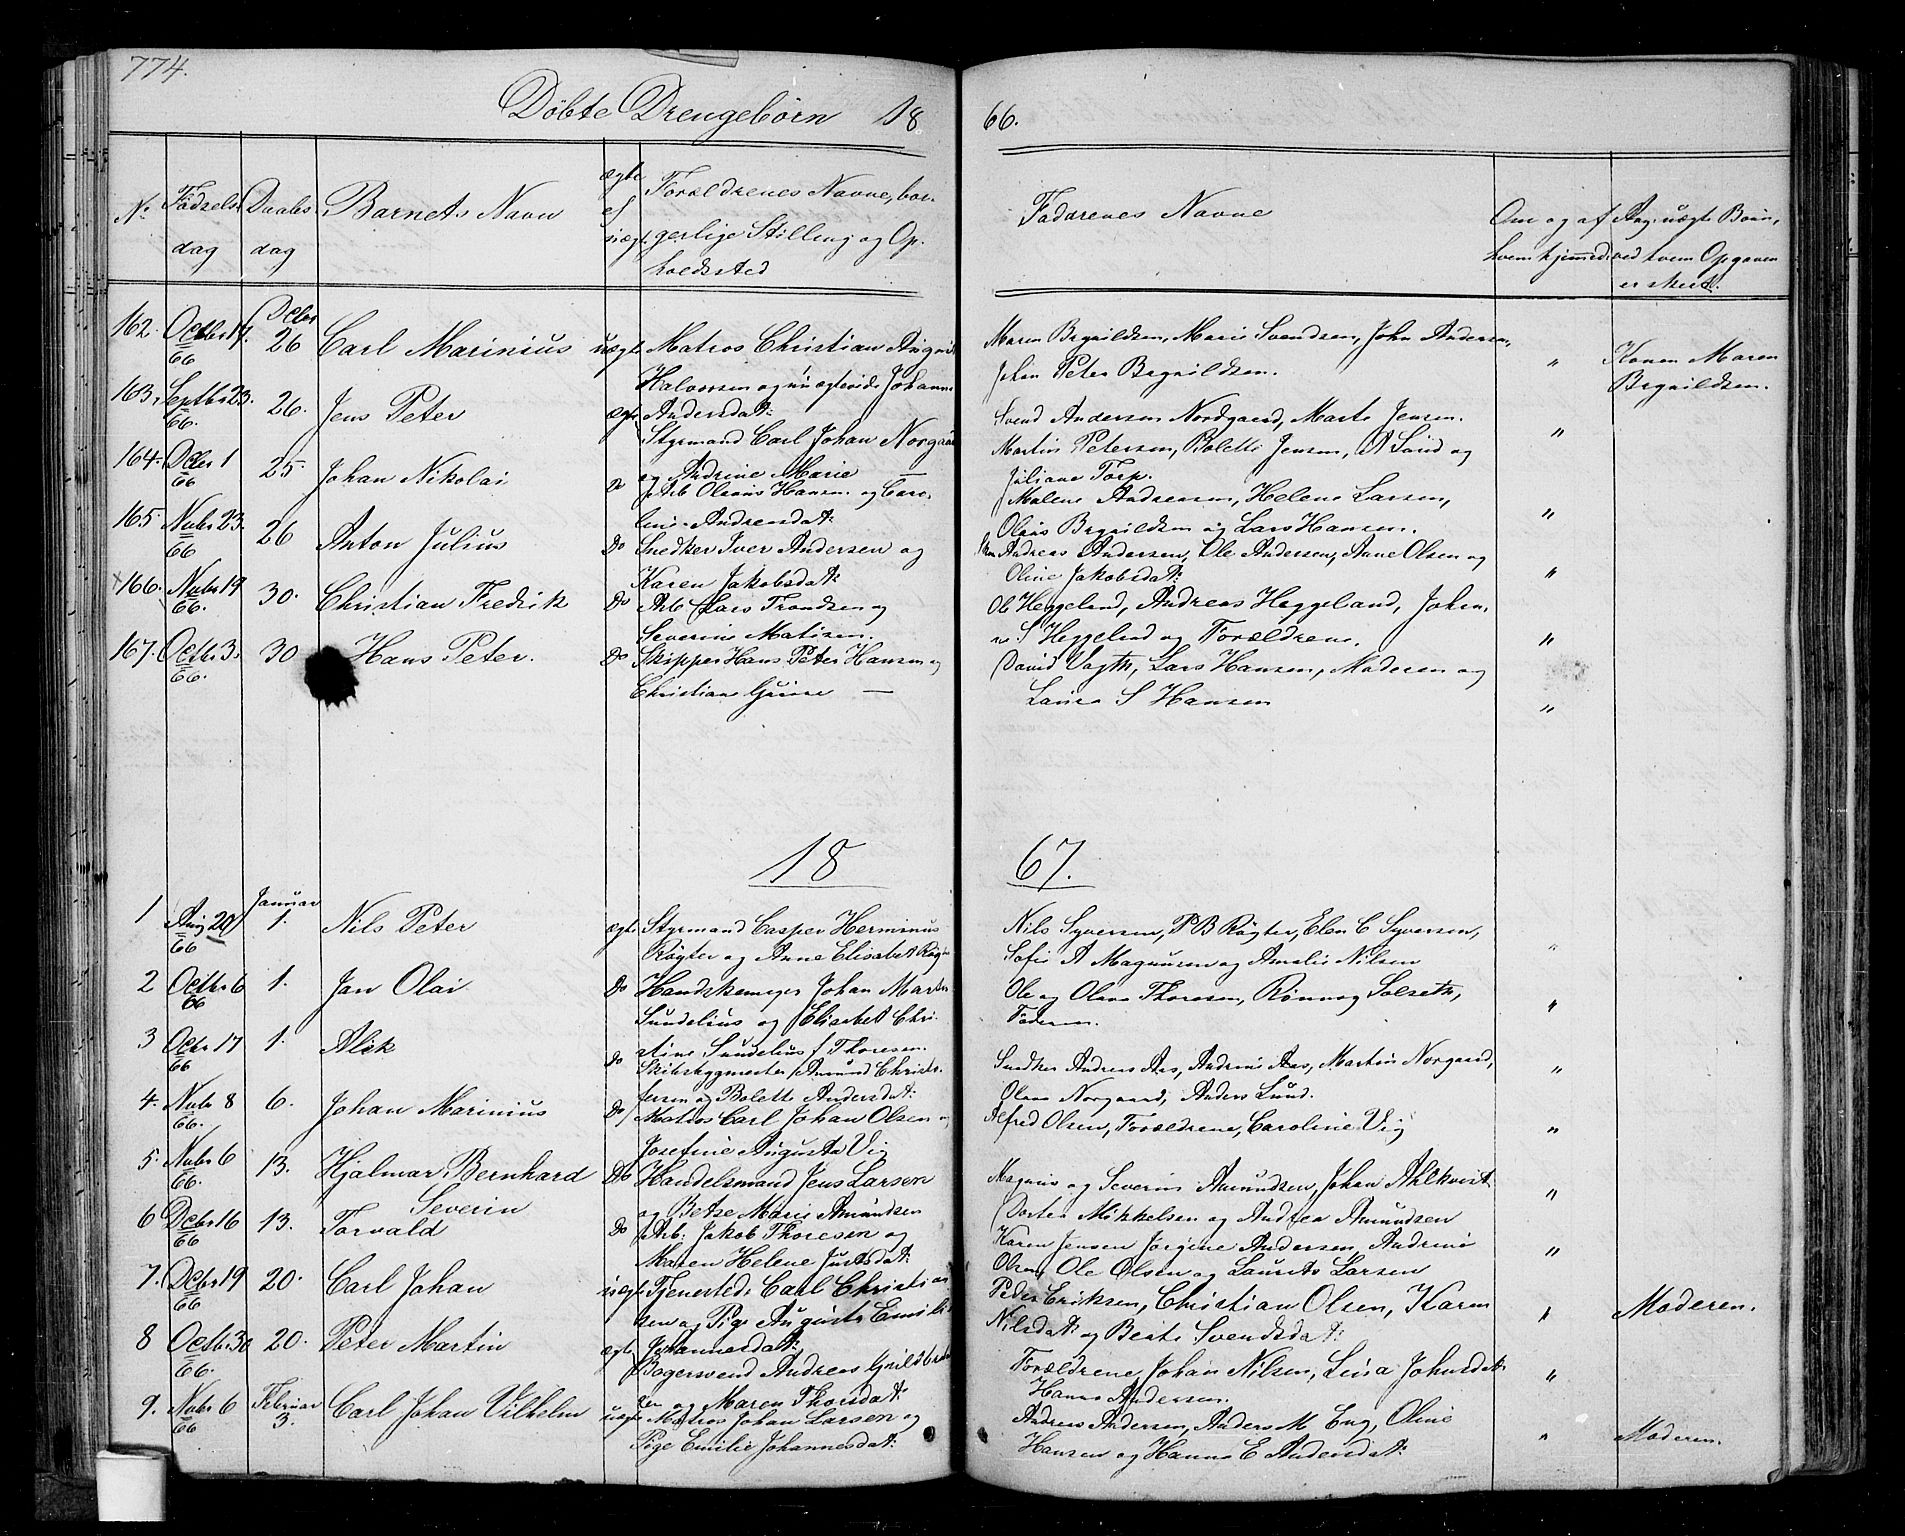 774.
Døbte Drengebørn 18 66.
No Fødsels dag Daabs dag Barnets Navn ægte el uægt. Forældrenes Navne, borgerlige Stilling og Opholdssted
Faddrenes Navne Om og af hvem hjemmed Ang. uægte Børn, ved hvem Opgaven er skeet.
162. Octbr 17. 66 Dcbr 26 Carl Marinius uægte Matros Christian
Halvorsen og Johann
Andersdat:
Maren Brynildsen, Marie Svendsen, John Andersen,
Johan Peter Brynildsen. " Konen Maren
Brynildsen.
163. Septbr 23. 66. 26. Jens Peter ægte
Styrmand Carl Johan Norgaar
og Andrine Marie —
Svend Andersen Nordgaard, Marte Jensen.
Martin Petersen, Bolette Jensen, A Lund og
Juliane Torp. "
164. Dcbr 1 66 25. Johan Nikolai Do Arb Olaus Hansen og Caro-
line Andreasdat:
Malene Andreasen, Helene Larsen,
Olaus Brynildsen og Lars Hansen. "
165. Nvbr 23. 66 26 Anton Julius Do Snedker Iver Andersen og
Karen Jakobsdat:
Andreas Andersen, Ole Andersen, Anne Olsen og
Oline Jakobsdat: "
166. Nvbr 19 66. 30. Christian Fredrik Do Arb Lars Trondsen og
Severine Matisen.
Ole Heggelund, Andreas Heggeland, Johan-
ne S Heggelund og Forældrene. "
167. Octbr 3. 66. 30 Hans Peter. Do Skipper Hans Peter Hansen og
Christiane —
David Vogth, Lars Hansen, Moderen og
Laura S Hansen "
18 67.
1 Aug 29 66 Januar 1. Nils Peter ægte Styrmand Casper Herminus
Røgter og Anne Elisabet
Nils Syversen, P B Røgter, Elen C Syversen,
Sofie A Magnusen og Amalie Nilsen "
2 Octbr 6 66 1. Jan Olai Do Handskemager Johan Martin
Sundelius og Elisabet Chri-
stine Sundelius f Thoresen.
Ole og Olava Thoresen, Rønnog Solseth,
Faderen. "
3 Octbr 17 66 1. Alik Do
Skibsbygmester Amund Christo-
fersen og Bolette Andersdat:
Snedker Andreas Aas, Andrine Aas, Martin Norgaard,
Olava Norgaard, Anders Lund. "
4. Nvbr 8 66. 6. Johan Marinius Do Matros Carl Johan Olsen og
Josefine Augusta Vig
Alfred Olsen, Forældrene, Caroline Vig "
5. Nvbr 6 66. 13. Hjalmar Bernhard
Severin Do Handelsmand Jens Larsen
og Betse Marie Amundsen
Magnus og Severin Amundsen, Johan Ahlkvist
Dortea Mikkelsen og Andrea Amundsen "
6 Dcbr 16 66 13. Torvald Do Arb: Jakob Thoresen og
Maren Helene
Karen Jensen Jørgine Andersen, Andrine
Olsen, Ole Olsen og Laurits Larsen "
7. Dcbr 19 66 20. Carl Johan uægte Tjenestedr Carl Christian
sen og Pige Auguste Emilie
Johannesdat:
Peder Eriksen, Christian Olsen, Karen
Nilsdat: og Beate Svendsdat: " Moderen.
8 Octbr 30 66. 20. Peter Martin ægte
Bagersvend Andreas Guldbrand
sen og Maren Thorsdat:
Forældrene, Johan Nilsen, Lina Johnsdat:
Hanna Andersen. "
9. Nvbr 6 66 Februar 3. Carl Johan Vilhelm uægte Matros Johan Larsen og
Pige Emilie Johannesdat:
Andreas Andersen, Anders M Eng, Oline
Hansen og Hanna E Andersdat: " Moderen.